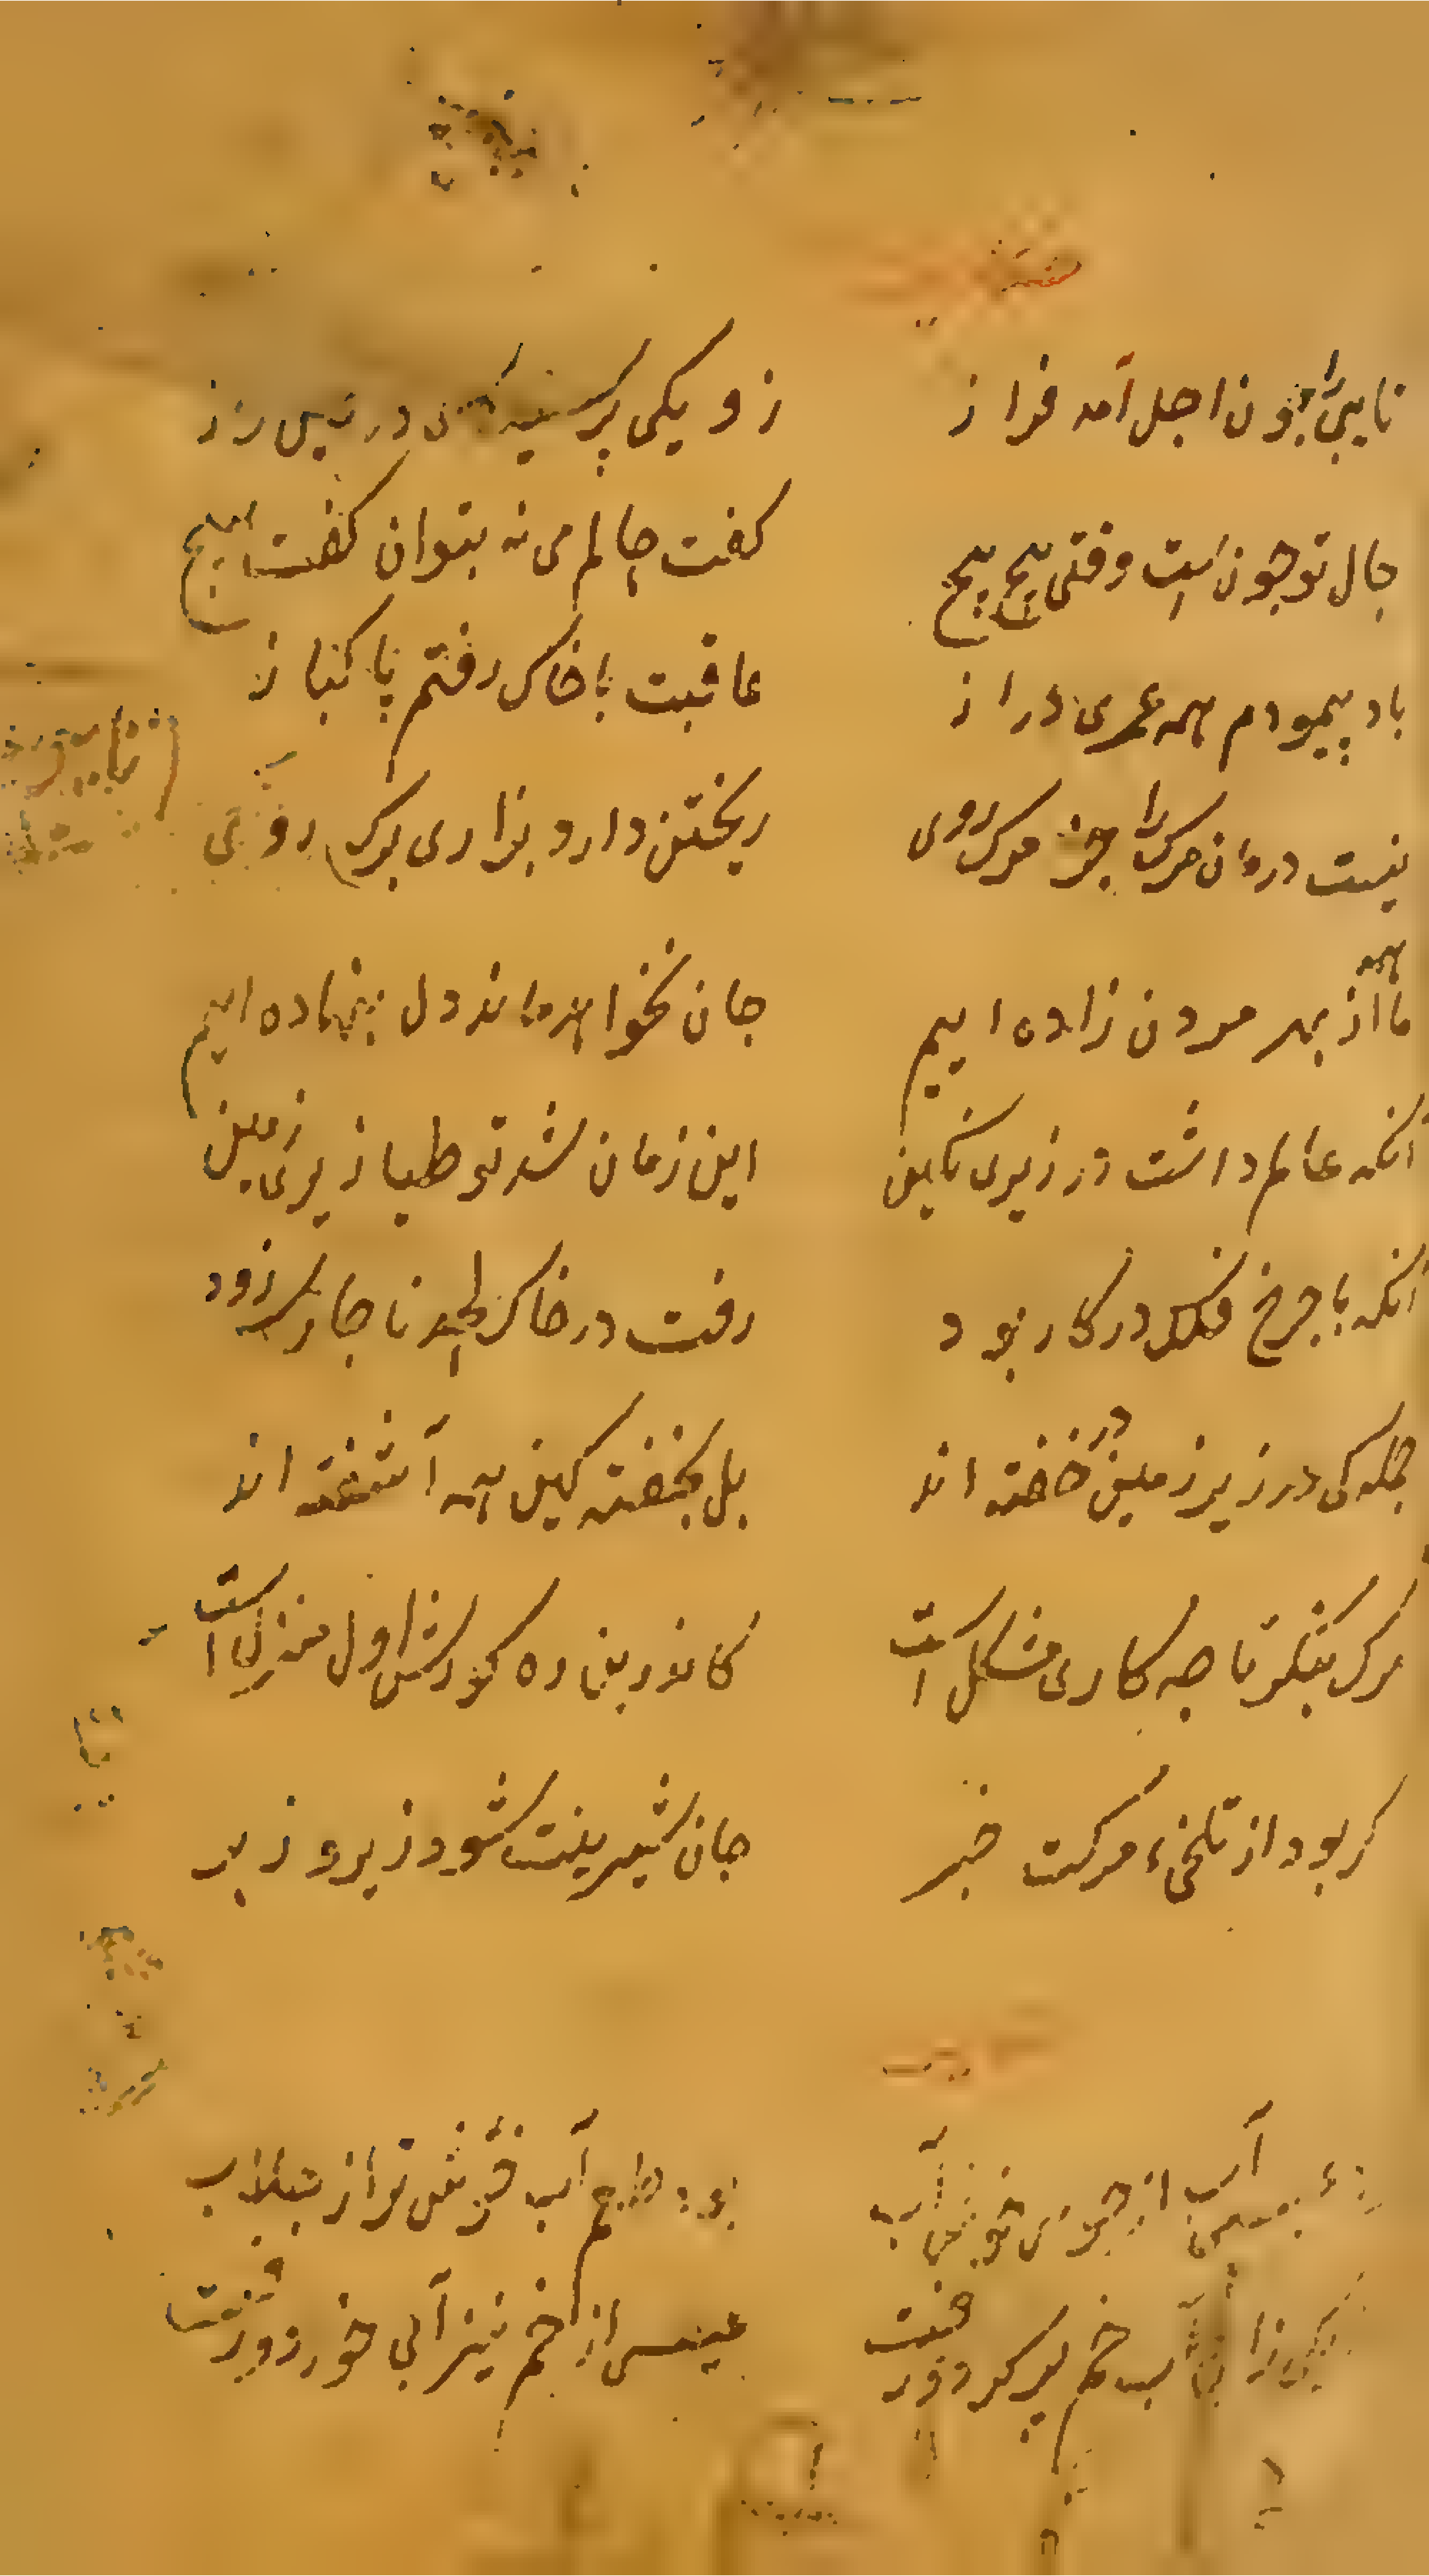 نایبی را چون اجل آمد فراز
زو یکی پرسید کای در پیش راز
حال تو چون است وقتی پیچ پیچ
کفت حالم می نه بتوان کفت هیچ
باد پیمودم همه عمری دراز
عاقبت با خاک رفتم پاکباز
نیست درمان مرک را جز مرک روی
ریختن دارد بزاری برک روی
ما همه از بهر مردن زاده ایم
جان نخواهد ماند دل بنهاده ایم
آنکه عالم داشت در زیری نکین
این زمان شد توطیا زیری زمین
آنکه با چرخ فلک در کار بود
رفت در خاک لحد ناچار زود
جمله کی در زیر زمین در خفته اند
بل بخفته کین همه آشفته اند
مرک بنکر تا چه کاری مشکل است
کاندرین ره کورش اول منزل است
کر بود از تلخیء مرکت خبر
جان شیرینت شود زیر و زبر
آب از جوی خوش آب
بود طعم آب خوشتر از جلاب
آب خم پر کرد و رفت
عیسی از خم نیز آبی خورد و رفت